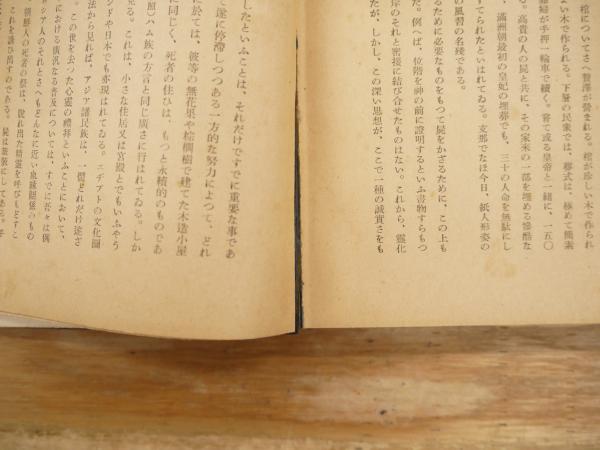 棺についてさへ贅澤が營まれる。棺が珍しい木で作られ
よい木で作られる。下層の民衆では、葬式は、極めて簡素
婦が手押一輪車で續く。嘗て或る皇帝と一緒に、一五〇
る。高貴の人の屍と共に、その家来の一部を埋める慘酷な
、滿洲朝最初の皇妃の埋葬でも、三十の人命を無駄にし
すてられたといはれてゐる。支那でなほ今日、紙人形姿の
の風習の名殘である。
るために必要なものをもつて屍をかざるために、この上も
だ。例へば、位階を神の前に證明するといふ書物すらもつ
岸のそれと密接に結び合せたものはない。これから、靈化
たが、しかし、この深い思想が、ここで一種の誠實さをも
したといふことは、それだけですでに重要な事であ
て遂に停滯しつつある一方的な努力によつて、どれ
に於ては、彼等の無花果や棕櫚樹で建てた木造小屋
に同じく、死者の住ひは、もつと永續的のものであ
照)ハム族の方言と同じ廣さに行はれてゐる。しか
見る。これは、小さな住居又は宮殿とでもいふやう
ンドや日本でも亦現はれてゐる。エヂプトの文化圈
法から見れば、アジア諸民族は、一體どれだけ遠ざ
。この世を去つた心靈の禮拜といふことにおいて、
における廣汎なる普及については、すでに吾々は偶
ア人のそれとさへもどんなに近い血緣關係のもの
朝鮮人の死者の祭は、脱れ出た精靈を呼びもどすこ
これを誘ひ出すのである。屍は盛裝にしてゐる。手